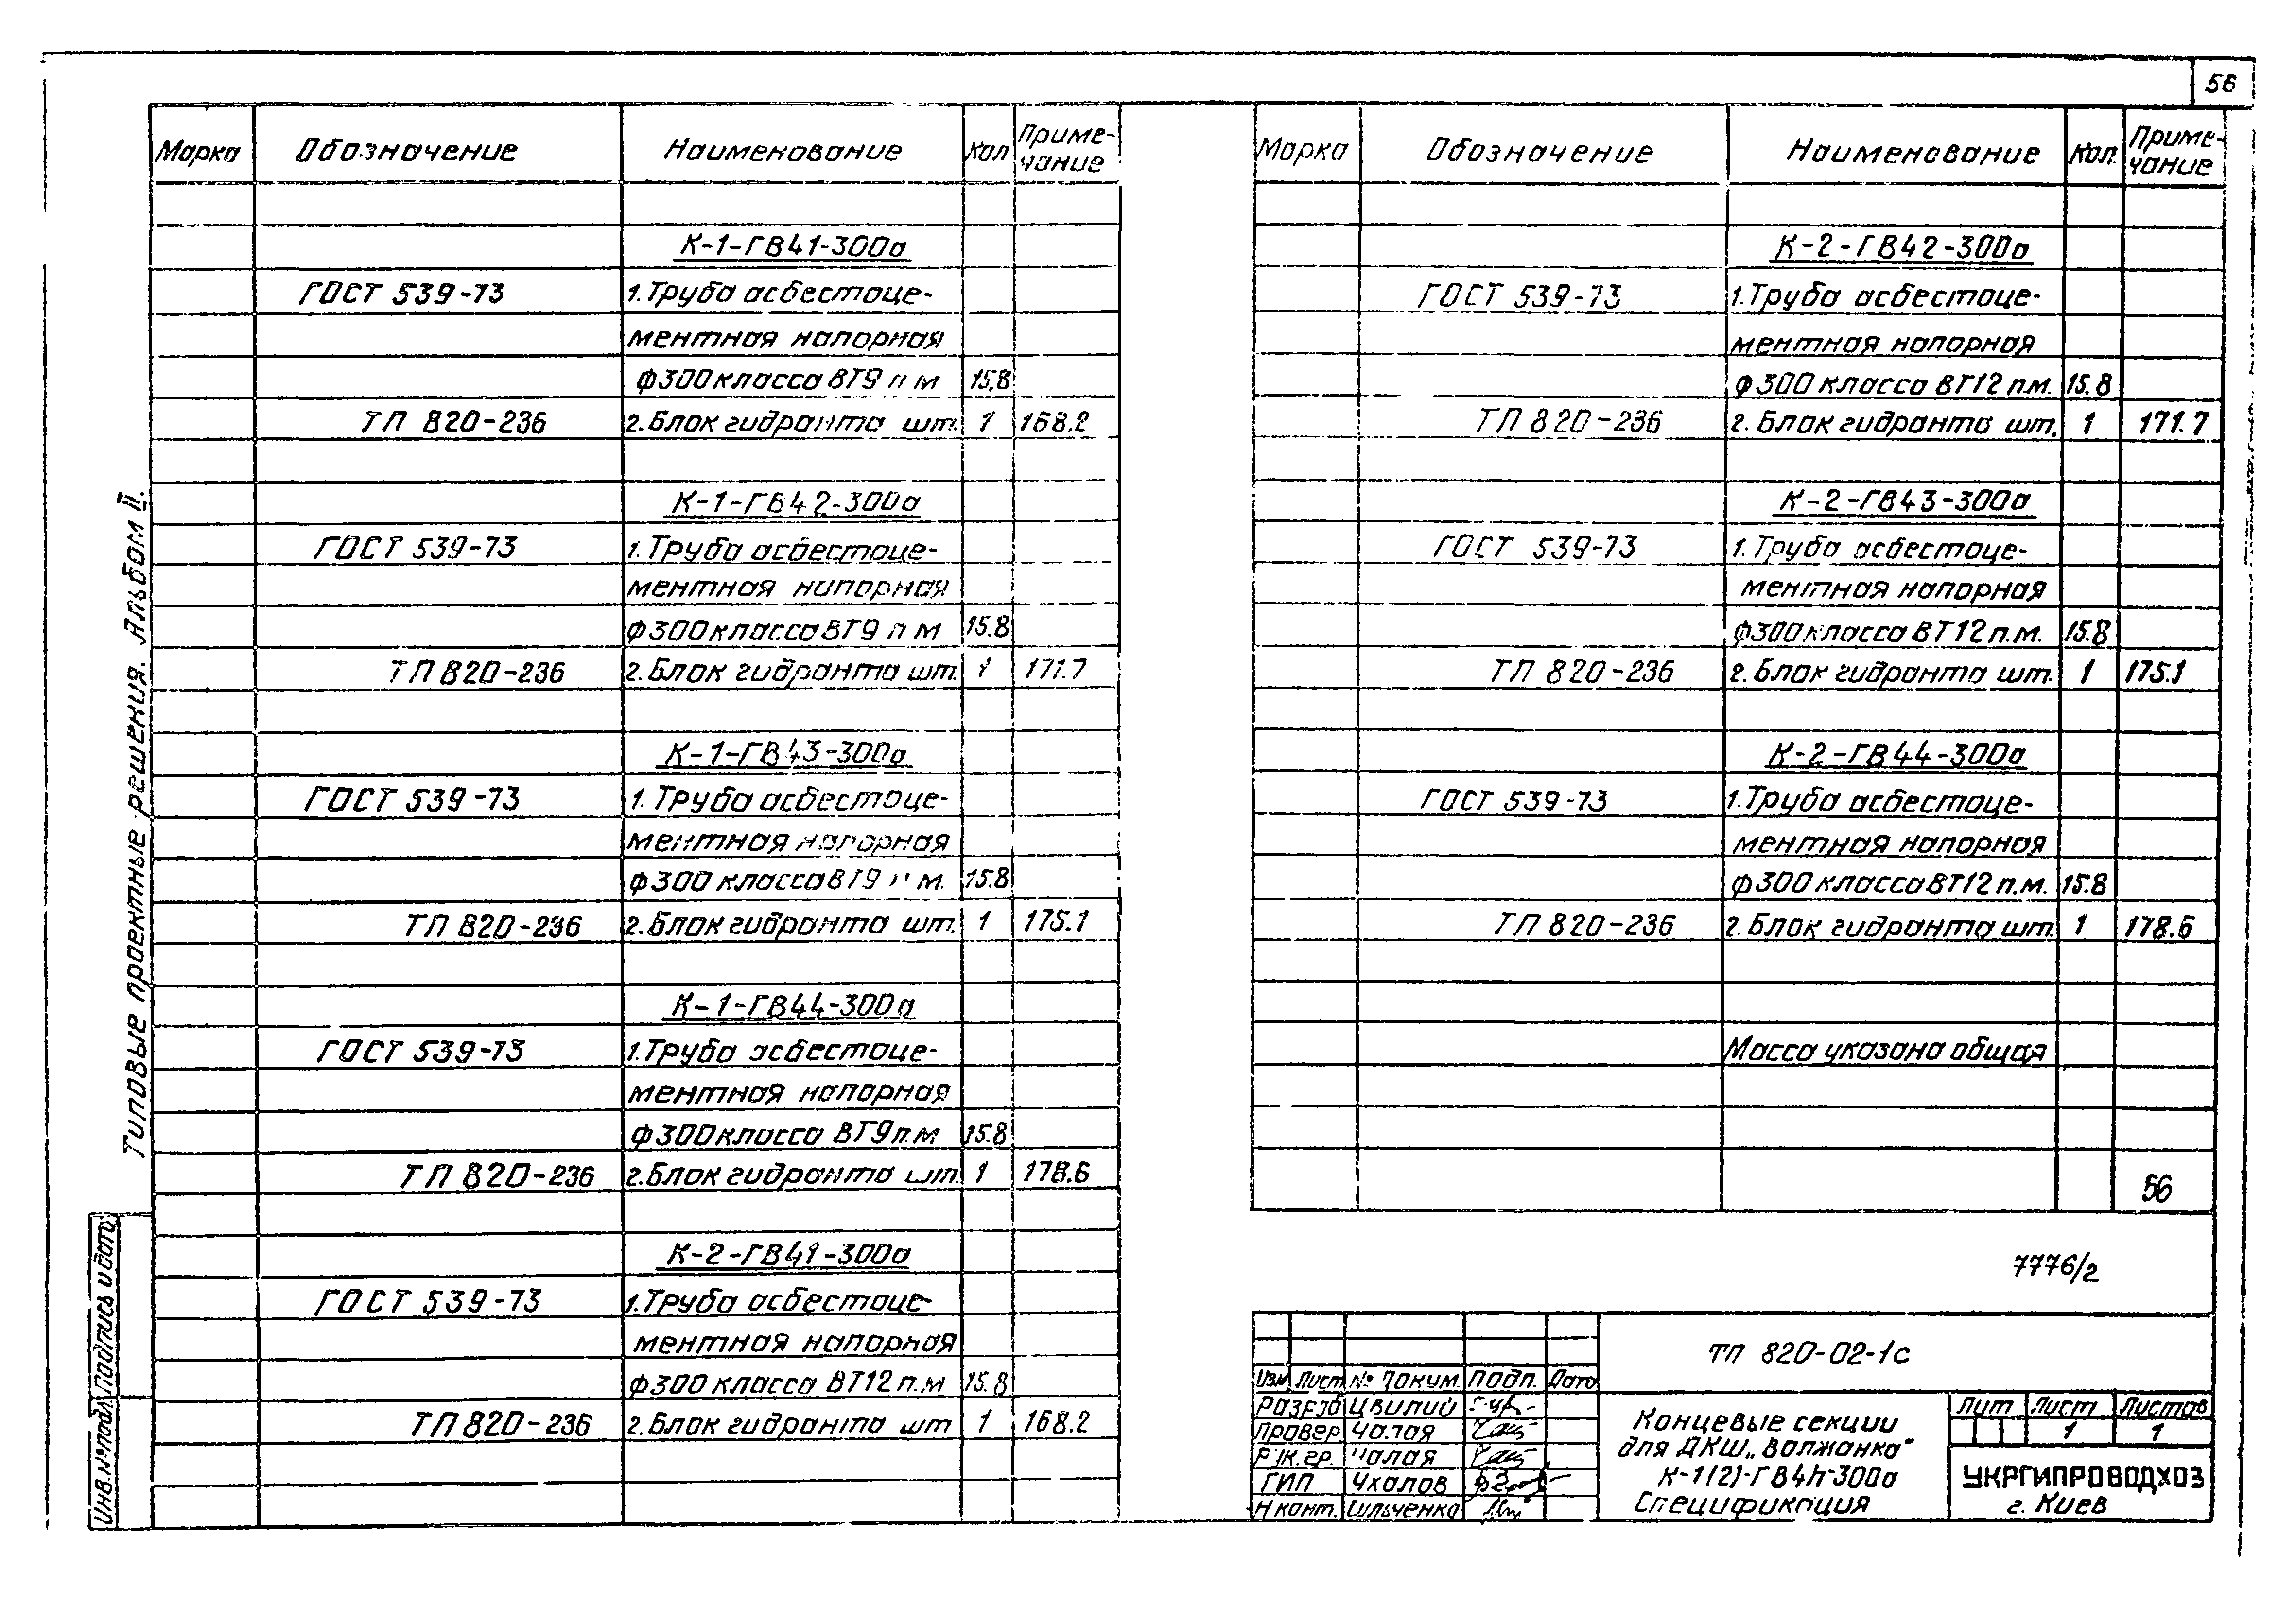 56
Марка Обозначение Наименование Кол Приме-
чание
К-1-ГВ41-300а
ГОСТ 539-73 1. Труба асбестоце-
ментная напорная
ф300 класса ВТ9 п м 15.8
ТП 820-236 2. Блок гидранта шт. 1 168.2
К-1-ГВ42-300а
ГОСТ 539-73 1. Труба асбестоце-
ментная напорная
ф300 класса ВТ9 п м 15.8
ТП 820-236 2. Блок гидранта шт. 1 171.7
К-1-ГВ43-300а
ГОСТ 539-73 1. Труба асбестоце-
ментная напорная
ф300 класса ВТ9 п м. 15.8
ТП 820-236 2. Блок гидранта шт. 1 175.1
К-1-ГВ44-300а
ГОСТ 539-73 1. Труба асбестоце-
ментная напорная
ф300 класса ВТ9 п.м 15.8
ТП 820-236 2. Блок гидранта шт. 1 178.6
К-2-ГВ41-300а
ГОСТ 539-73 1. Труба асбестоце-
ментная напорная
ф300 класса ВТ12 п.м 15.8
ТП 820-236 2. Блок гидранта шт 1 168.2
Марка Обозначение Наименование Кол. Приме-
чание
К-2-ГВ42-300а
ГОСТ 539-73 1. Труба асбестоце-
ментная напорная
ф300 класса ВТ12 п.м. 15.8
ТП 820-236 2. Блок гидранта шт. 1 171.7
К-2-ГВ43-300а
ГОСТ 539-73 1. Труба асбестоце-
ментная напорная
ф300 класса ВТ12 п.м. 15.8
ТП 820-236 2. Блок гидранта шт. 1 175.1
К-2-ГВ44-300а
ГОСТ 539-73 1. Труба асбестоце-
ментная напорная
ф300 класса ВТ12 п.м. 15.8
ТП 820-236 2. Блок гидранта шт. 1 178.6
Масса указана общая
56
7776/2
Типовые проектные решения. Альбом II.
Инв.№ подл. Подпись и дата
ТП 820-02-1с
Изм. Лист № докум. Подп. Дата
Разраб Цвилий
Провер. Чалая
Рук.гр. Чалая
ГИП Чхалов
Н конт. Сильченко
Концевые секции
для ДКШ „Волжанка"
К-1(2)-ГВ4h-300а
Спецификация
Лит Лист Листов
1 1
УКРГИПРОВОДХОЗ
г. Киев